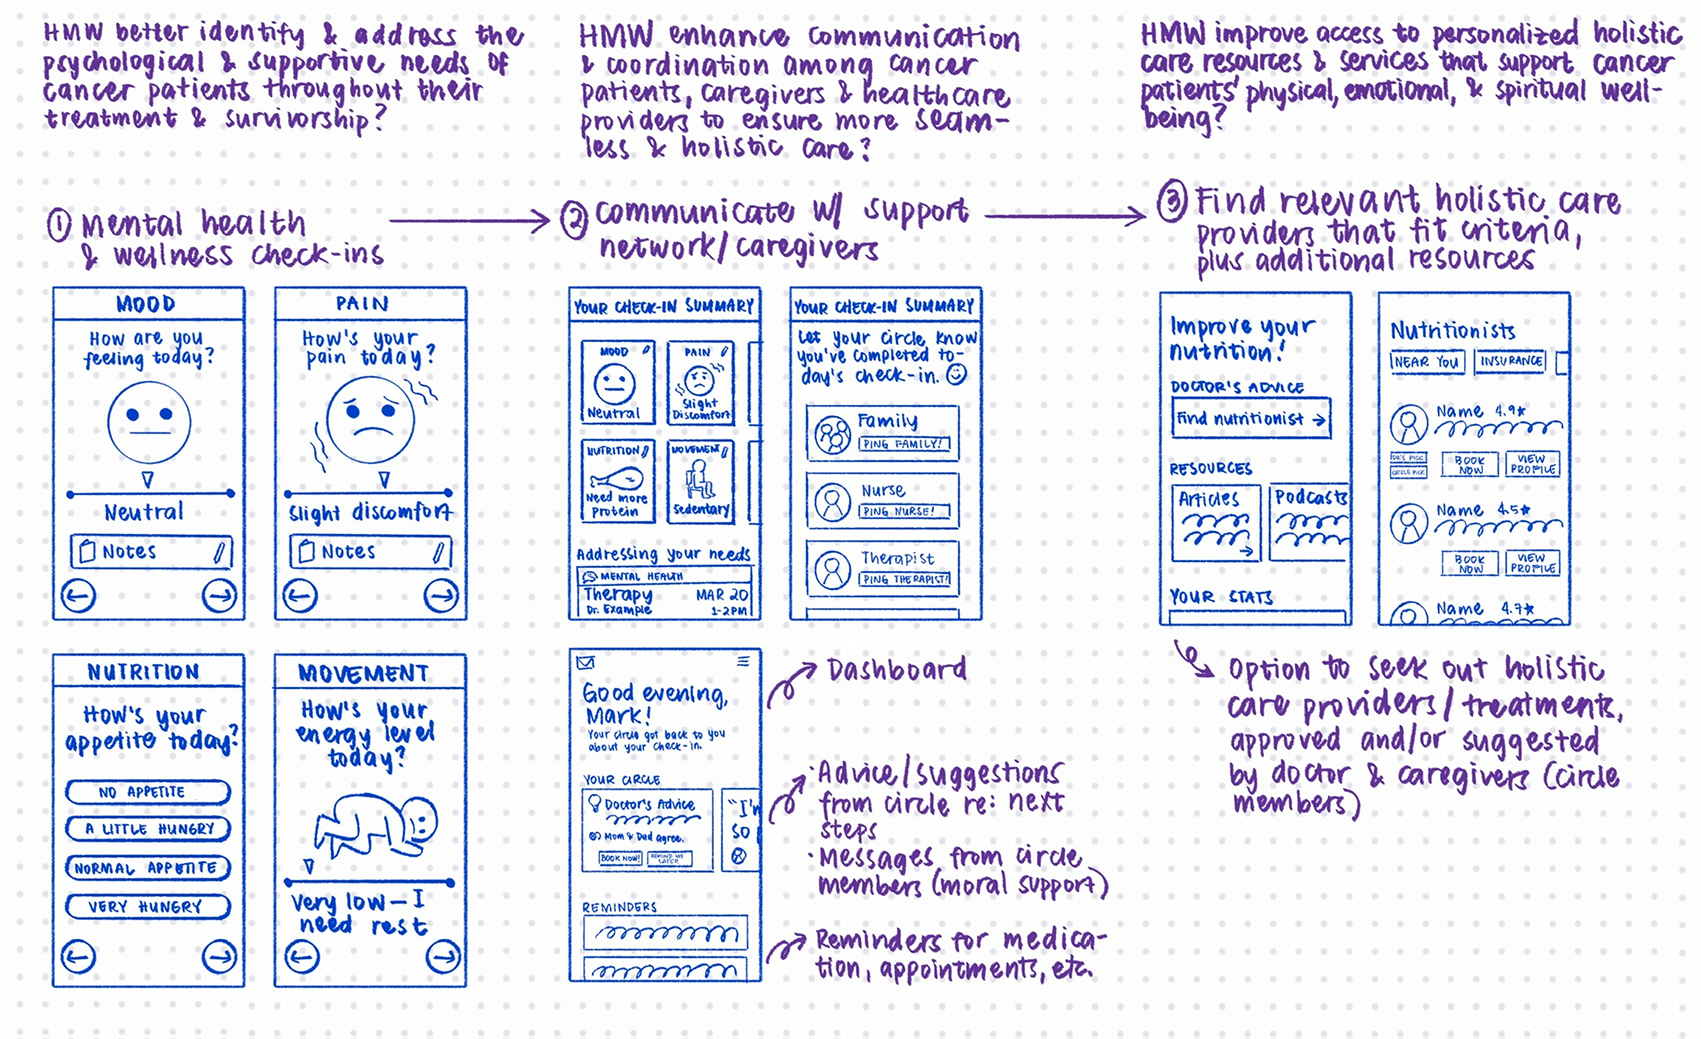 HMW better identify & address the
psychological & supportive needs of
cancer patients throughout their
treatment & survivorship?
HMW enhance communication
& coordination among cancer
patients, caregivers & healthcare
providers to ensure more seam-
less & holistic care?
HMW improve access to personalized holistic
care resources & services that support cancer
patients' physical, emotional, & spiritual well-
being?
① Mental health
& wellness check-ins
② Communicate w/ support
network/caregivers
③ Find relevant holistic care
providers that fit criteria,
plus additional resources
MOOD
How are you
feeling today?
Neutral
Notes
PAIN
How's your
pain today?
Slight discomfort
Notes
NUTRITION
How's your
appetite today?
NO APPETITE
A LITTLE HUNGRY
NORMAL APPETITE
VERY HUNGRY
MOVEMENT
How's your
energy level
today?
Very low — I
need rest
YOUR CHECK-IN SUMMARY
MOOD
Neutral
PAIN
Slight
Discomfort
NUTRITION
Need more
Protein
MOVEMENT
Sedentary
Addressing your needs
MENTAL HEALTH
Therapy MAR 20
Dr. Example 1-2PM
YOUR CHECK-IN SUMMARY
Let your circle know
you've completed to-
day's check-in.
Family
PING FAMILY!
Nurse
PING NURSE!
Therapist
PING THERAPIST!
Good evening,
Mark!
Your circle got back to you
about your check-in.
YOUR CIRCLE
Doctor's Advice
Mom & Dad agree.
BOOK NOW!
REMIND ME
LATER
"I'm
so
REMINDERS
Dashboard
· Advice/suggestions
from circle re: next
steps
· Messages from circle
members (moral support)
Reminders for medica-
tion, appointments, etc.
Improve your
nutrition!
DOCTOR'S ADVICE
Find nutritionist →
RESOURCES
Articles
Podcasts
YOUR STATS
Nutritionists
NEAR YOU
INSURANCE
Name 4.9★
DR'S PICK
CIRCLE PICK
BOOK
NOW
VIEW
PROFILE
Name 4.5★
BOOK
NOW
VIEW
PROFILE
Name 4.7★
Option to seek out holistic
care providers/treatments,
approved and/or suggested
by doctor & caregivers (circle
members)